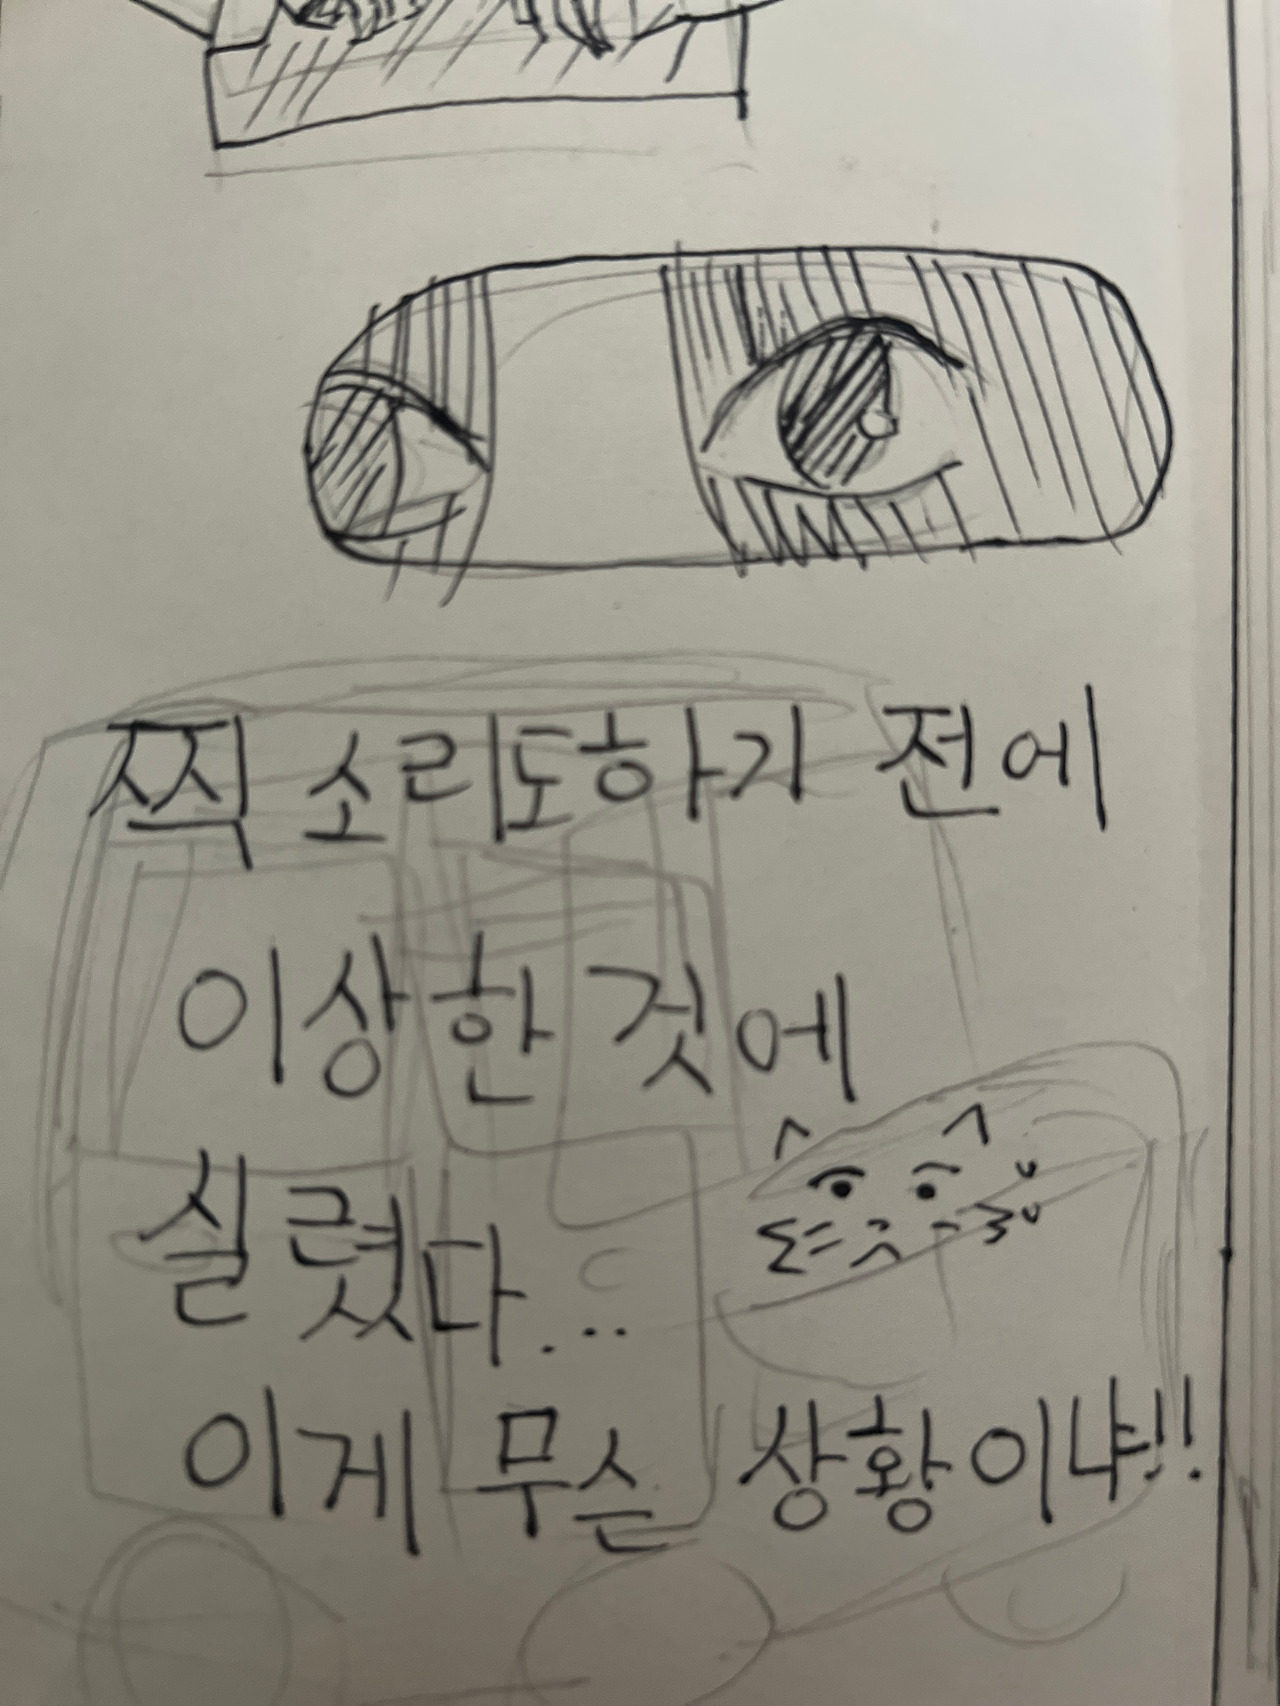 찍 소리도하기 전에
이상한 것에
실렸다...
이게 무슨 상황이냐!!